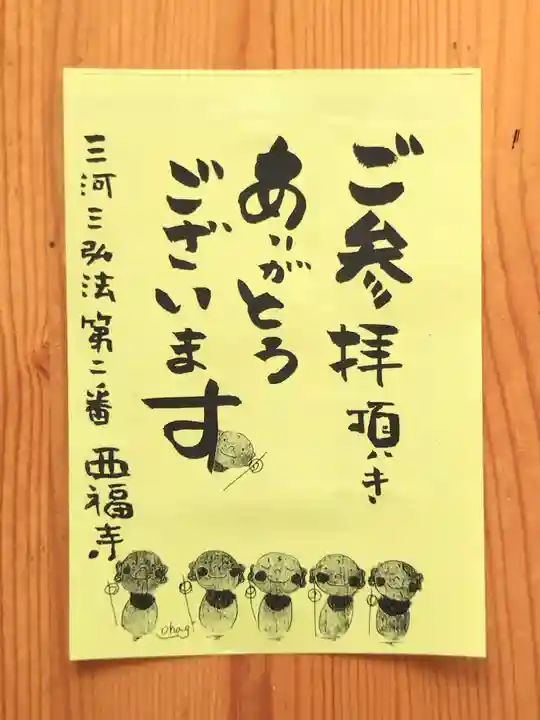 ご参拝頂き
ありがとう
ございます
三河三弘法第二番 西福寺
ohagi